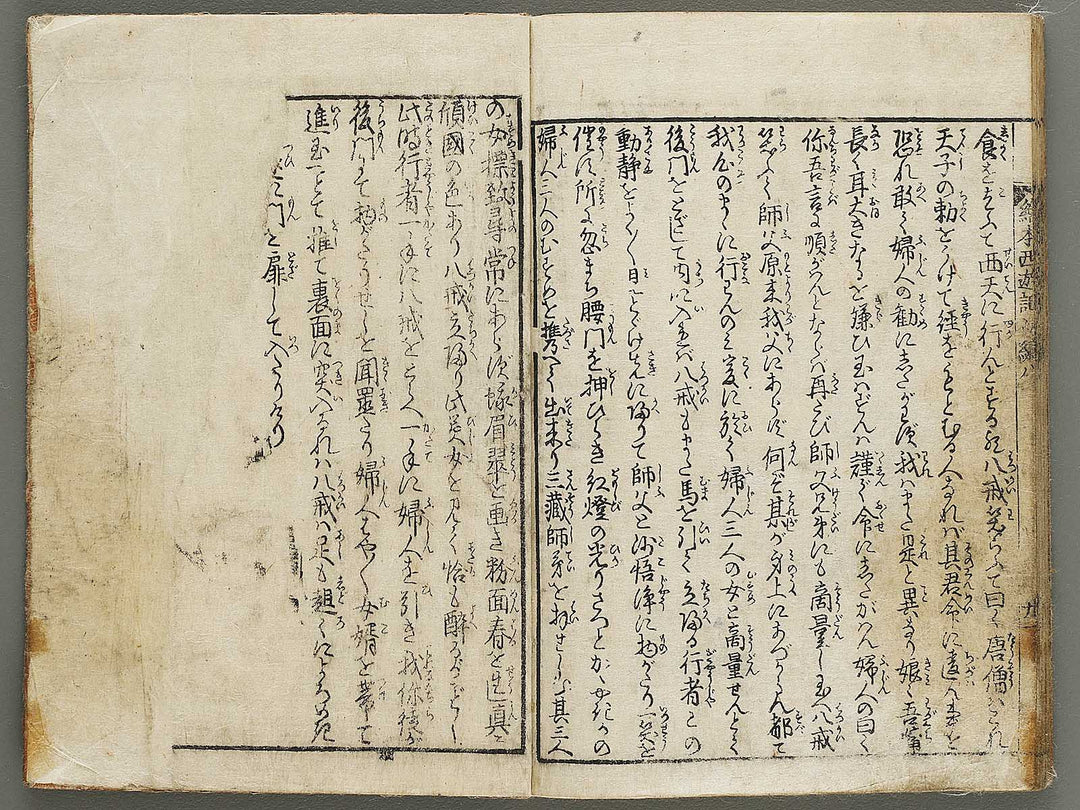 食をもふて西天に行んとする
八戒笑らふて曰く唐僧はこれ
天子の勅をうけて経をもとむる人なれバ其君命に違ん事を
恐れ敢て婦人の勧にしたがハず我ハまた是と異なり娘々吾等
長き耳大きなるを嫌ひ玉ハずんバ謹で命にしたがハん婦人の曰く
你吾言に順がハんとならバ再たび師父兄弟にも商量し玉へ八戒
笑ふて師父原来我父にあらず何ど其が身上にあづからん都て
我心の中に行んのミ爰に於て婦人三人の女と商量せんとて
後門をとざして内に入れバ八戒もまた馬を引て立帰る行者この
動静をよくよく見とどけ先に帰りて師父と沙悟浄に物がたり一笑を
催す所に忽まち腰門を押ひらき紅燈の光りさつとかゝやきかの
婦人三人のむすめを携へて出来り三蔵師弟を拝せしむ其三人
の女標致尋常にあらず蛾眉翠を画き粉面春を生じ真に
傾國の色あり八戒立帰り此美女を見て恰も酔るがごとし
此時行者一手に八戒をとらへ一手に婦人を引き我你後が
後門にて物がたりせしを聞置たり婦人はやく女婿を帯て
進玉へとて推て裏面に突入るれハ八戒ハ足も趄々によろめき
つひに門を扉して入たりけり
絵本西遊記初編八
九